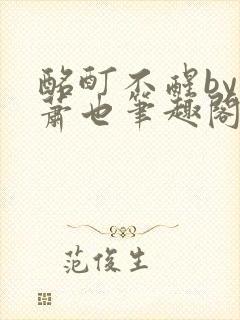 酩酊不醒by
萧也筆趣阁
范俊生